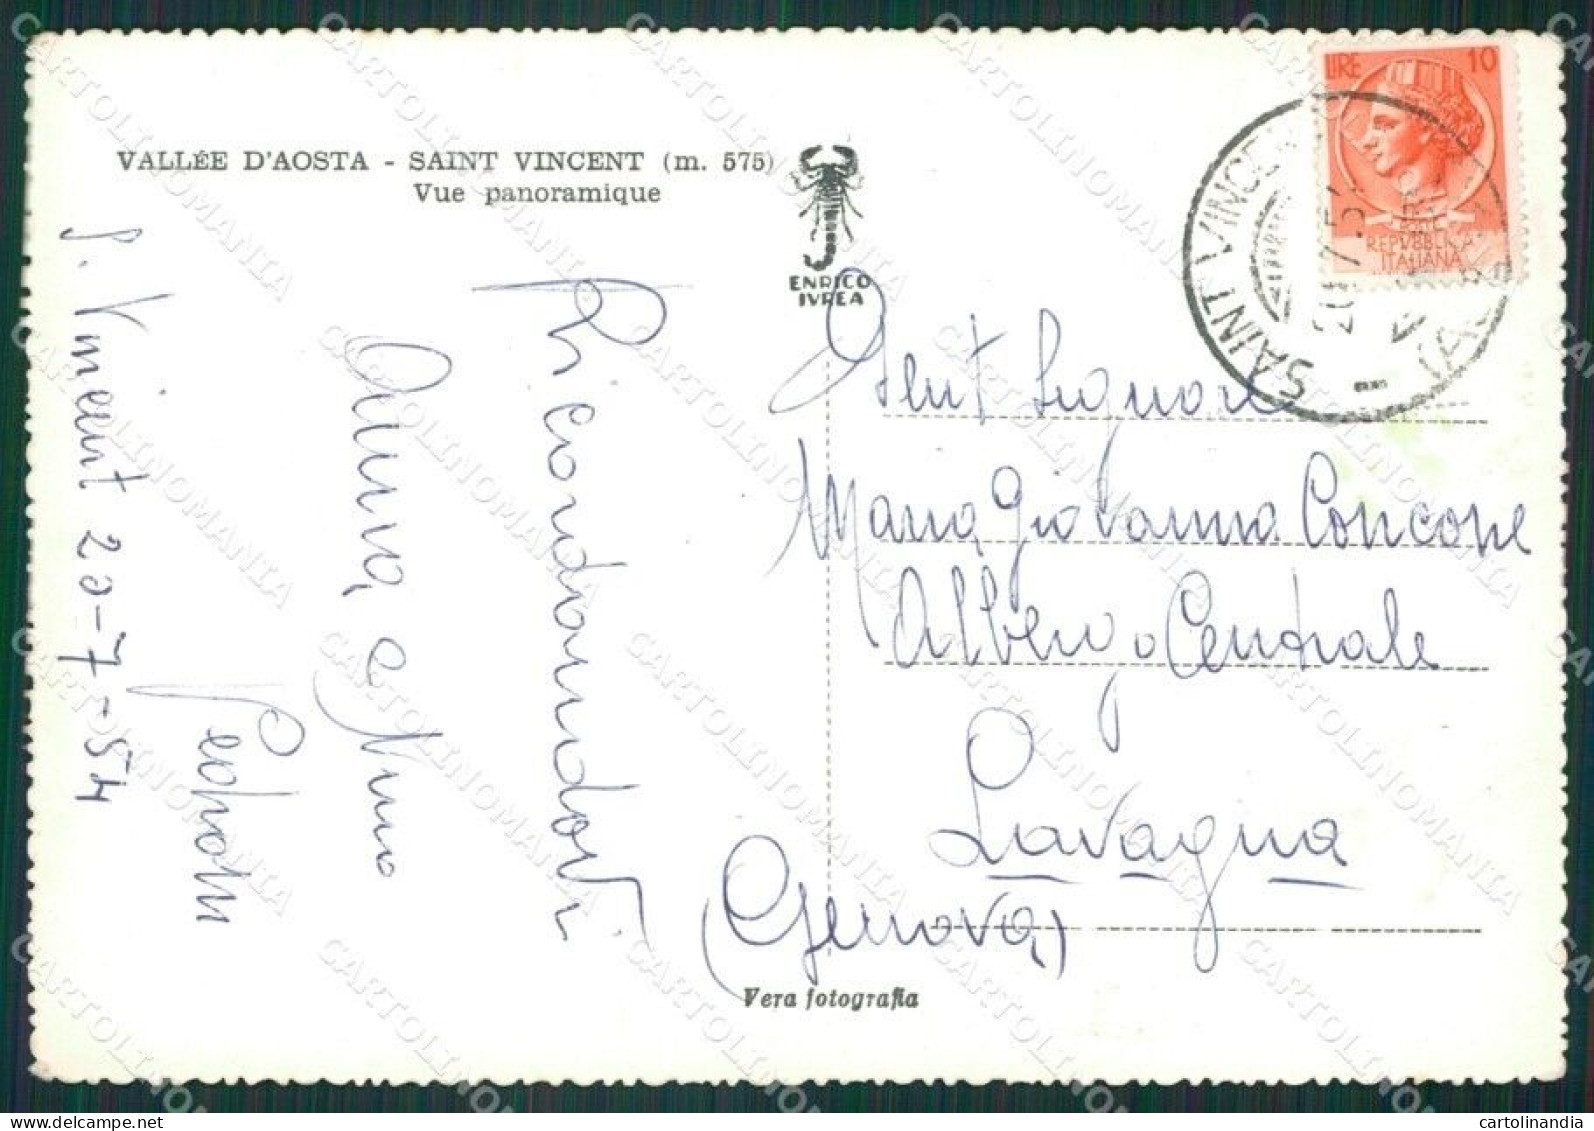 VALLÉE D'AOSTA - SAINT VINCENT (m. 575)
Vue panoramique
ENRICO
IVREA
LIRE 10
REPVBBLICA
ITALIANA
SAINT VINCENT
S. Vincent 20-7-54
Ricordandovi
Anna e Nino
Gent Signore
Maria Giovanna Concone
Albergo Centrale
Lavagna
(Genova)
Vera fotografia
CARTOLINOMANIA
cartolinandia